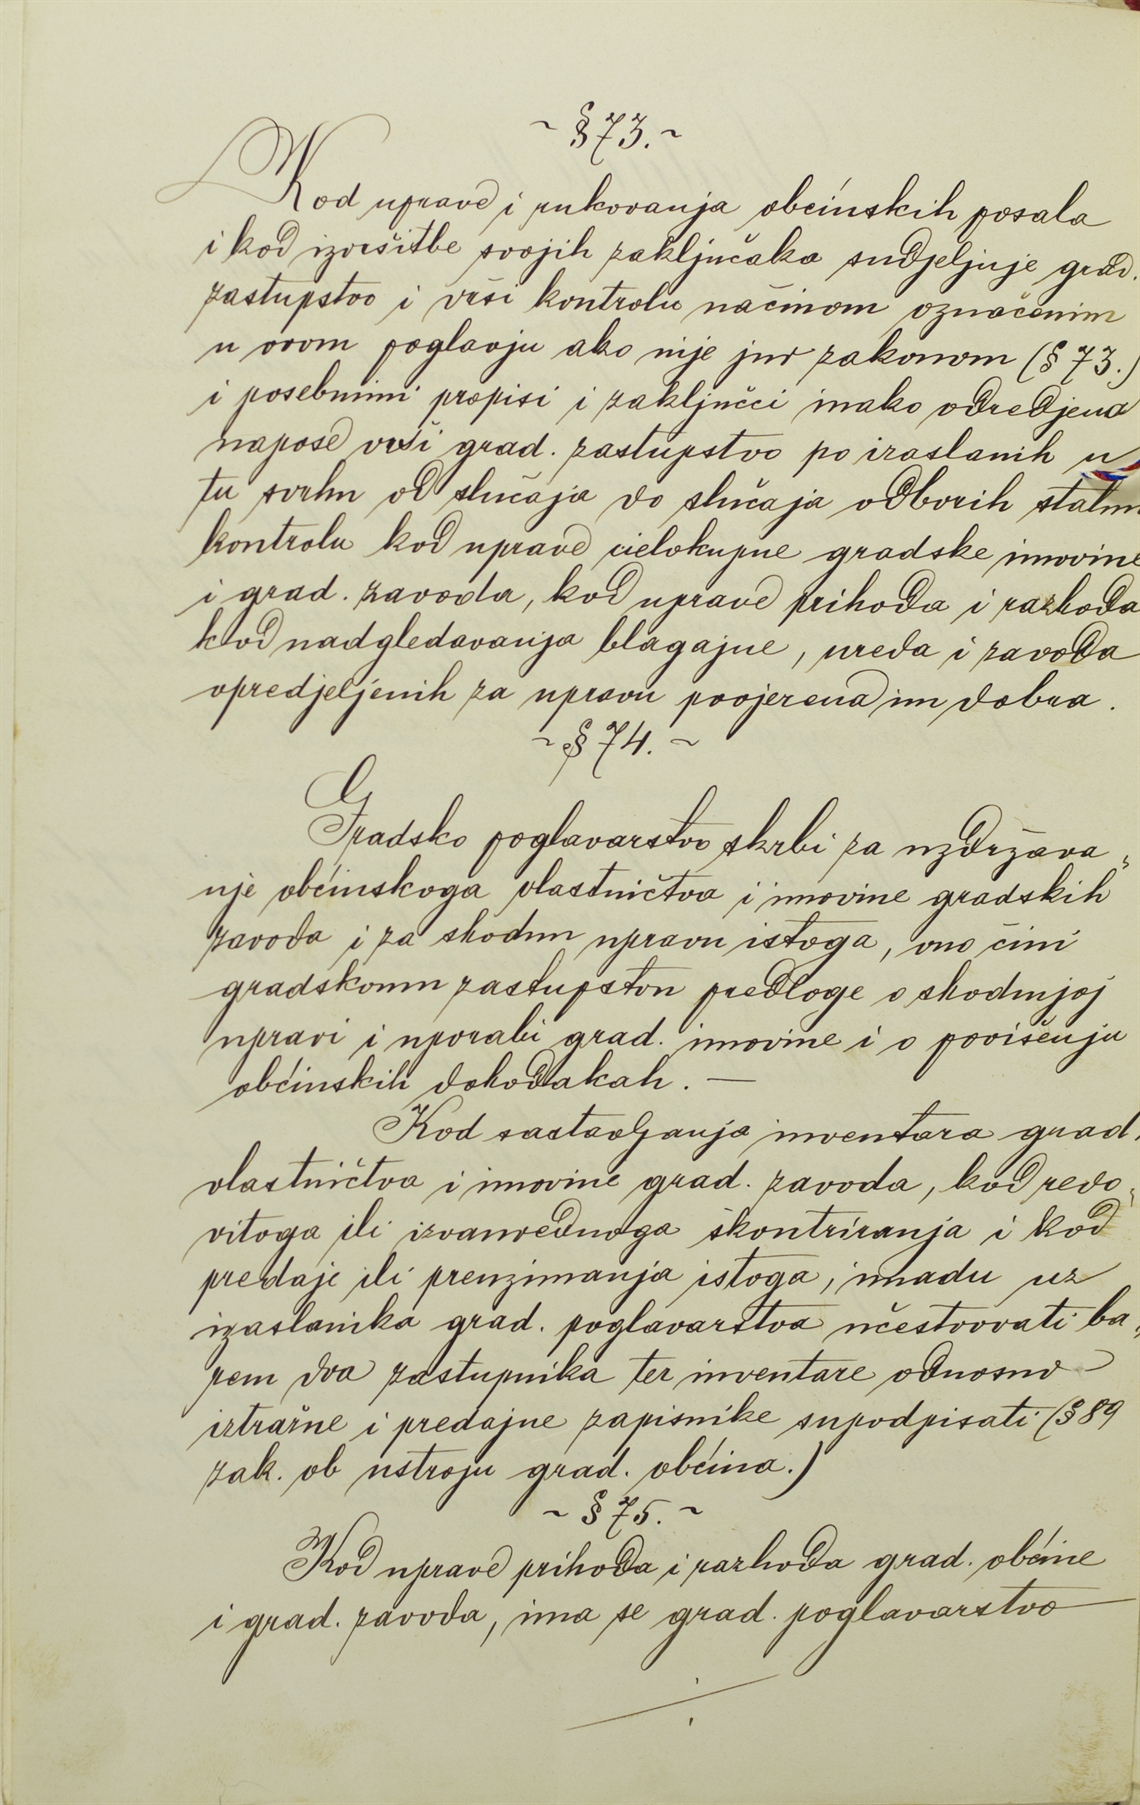 ~ § 73. ~
Kod uprave i rukovanja obćinskih posala
i kod izvršitbe svojih zaključaka sudjeljuje grad.
zastupstvo i vrši kontrolu načinom označenim
u ovom poglavju ako nije jur zakonom (§ 73.)
i posebnimi propisi i zaključci inako odredjena
napose vrši grad. zastupstvo po izaslanih u
tu svrhu od slučaja do slučaja odborih stalnu
kontrolu kod uprave cielokupne gradske imovine
i grad. zavoda, kod uprave prihoda i razhoda
kod nadgledavanja blagajne, ureda i zavoda
opredjeljenih za upravu povjerena im dobra.
~ § 74. ~
Gradsko poglavarstvo skrbi za uzdržava„
nje obćinskoga vlastničtva i imovine gradskih
zavoda i za shodnu upravu istoga, ono čini
gradskomu zastupstvu predloge o shodnijoj
upravi i uporabi grad. imovine i o povišenju
obćinskih dohodakah. —
Kod sastavljanja inventara grad.
vlastničtva i imovine grad. zavoda, kod redo„
vitoga ili izvanrednoga škontriranja i kod
predaje ili preuzimanja istoga, imadu uz
izaslanika grad. poglavarstva učestvovati ba„
rem dva zastupnika ter inventare odnosno
iztražne i predajne zapisnike supodpisati (§ 89
zak. ob ustroju grad. obćina.)
~ § 75. ~
Kod uprave prihoda i razhoda grad. obćine
i grad. zavoda, ima se grad. poglavarstvo